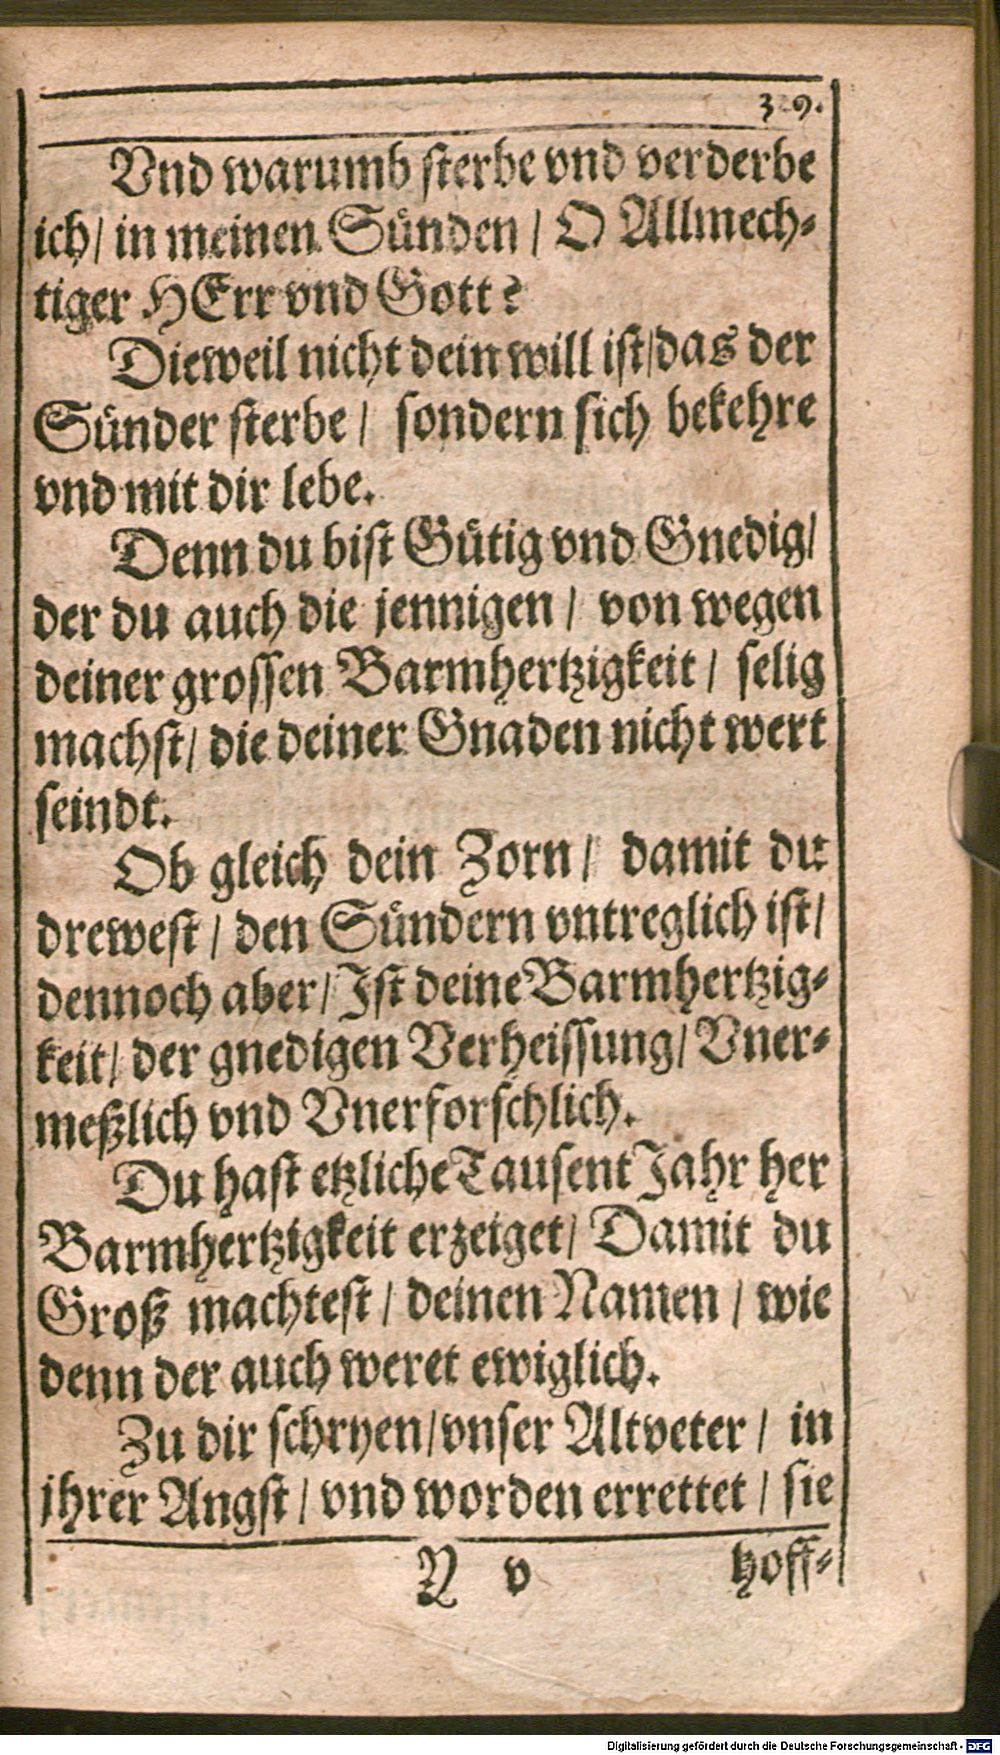 39.
Vnd warumb sterbe vnd verderbe
ich/ in meinen Sünden/ O Allmech-
tiger HErr vnd Gott?
Dieweil nicht dein will ist/das der
Sünder sterbe/ sondern sich bekehre
vnd mit dir lebe.
Denn du bist Gütig vnd Gnedig/
der du auch die jennigen/ von wegen
deiner grossen Barmhertzigkeit/ selig
machst/ die deiner Gnaden nicht wert
seindt.
Ob gleich dein Zorn/ damit du
drewest/ den Sündern vntreglich ist/
dennoch aber/ Ist deine Barmhertzig-
keit/ der gnedigen Verheissung/ Vner-
meßlich vnd Vnerforschlich.
Du hast etzliche Tausent Jahr her
Barmhertzigkeit erzeiget/ Damit du
Groß machtest/ deinen Namen/ wie
denn der auch weret ewiglich.
Zu dir schryen/vnser Altveter/ in
jhrer Angst/ vnd worden errettet/ sie
N v hoff-
Digitalisierung gefördert durch die Deutsche Forschungsgemeinschaft - DFG